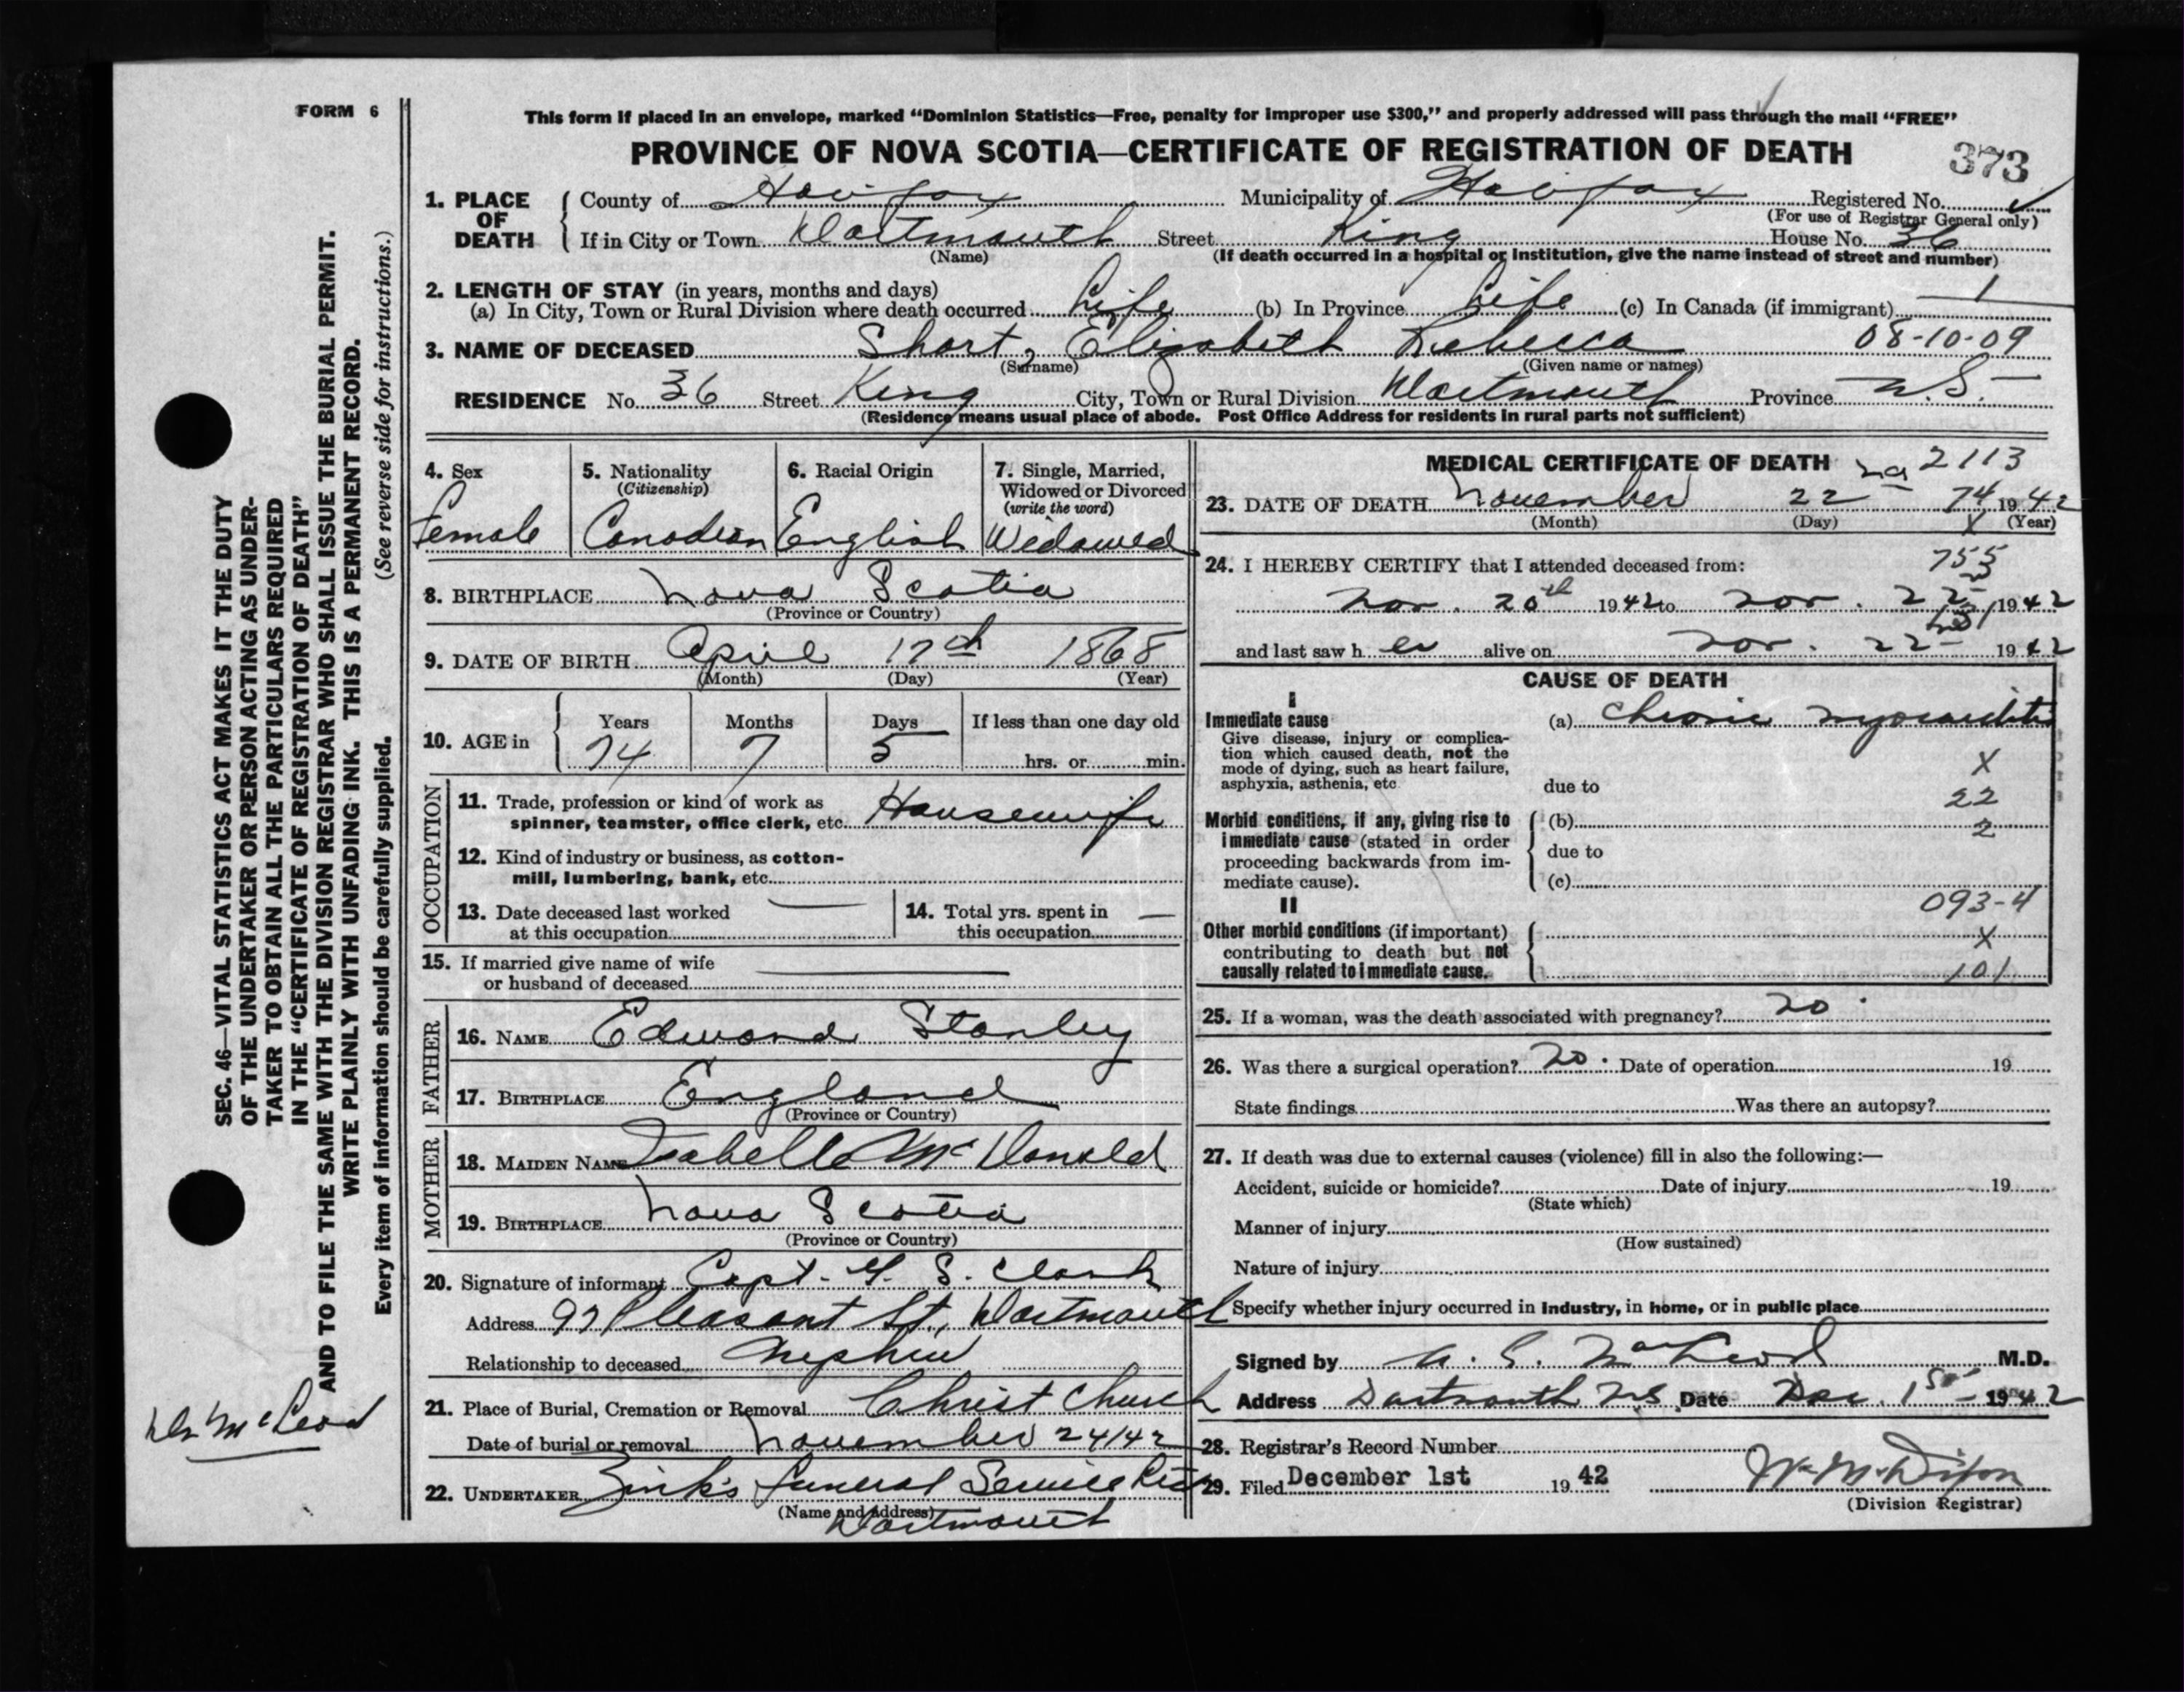 FORM 6
This form if placed in an envelope, marked "Dominion Statistics—Free, penalty for improper use $300," and properly addressed will pass through the mail "FREE"
PROVINCE OF NOVA SCOTIA—CERTIFICATE OF REGISTRATION OF DEATH
373
1. PLACE OF DEATH { County of Halifax Municipality of Halifax Registered No.
(For use of Registrar General only)
If in City or Town Dartmouth Street King House No. 36
(Name) (If death occurred in a hospital or institution, give the name instead of street and number)
2. LENGTH OF STAY (in years, months and days)
(a) In City, Town or Rural Division where death occurred Life (b) In Province Life (c) In Canada (if immigrant)
3. NAME OF DECEASED Short, Elizabeth Rebecca 08-10-09
(Surname) (Given name or names)
RESIDENCE No. 36 Street King City, Town or Rural Division Dartmouth Province N.S.
(Residence means usual place of abode. Post Office Address for residents in rural parts not sufficient)
4. Sex
Female
5. Nationality
(Citizenship)
Canadian
6. Racial Origin
English
7. Single, Married,
Widowed or Divorced
(write the word)
Widowed
8. BIRTHPLACE Nova Scotia
(Province or Country)
9. DATE OF BIRTH April 17th 1868
(Month) (Day) (Year)
10. AGE in
Years Months Days If less than one day old
74 7 5 hrs. or min.
OCCUPATION
11. Trade, profession or kind of work as
spinner, teamster, office clerk, etc. Housewife
12. Kind of industry or business, as cotton-
mill, lumbering, bank, etc.
13. Date deceased last worked
at this occupation
14. Total yrs. spent in
this occupation
15. If married give name of wife
or husband of deceased
FATHER
16. NAME Edward Stanley
17. BIRTHPLACE England
(Province or Country)
MOTHER
18. MAIDEN NAME Isabelle McDonald
19. BIRTHPLACE Nova Scotia
(Province or Country)
20. Signature of informant Capt. S. Clark
Address 97 Pleasant St., Dartmouth
Relationship to deceased Nephew
21. Place of Burial, Cremation or Removal Christ Church
Date of burial or removal November 24/42
22. UNDERTAKER Zink's Funeral Service Ltd
(Name and Address)
Dartmouth
MEDICAL CERTIFICATE OF DEATH 2113
23. DATE OF DEATH November 22 nd 74 1942
(Month) (Day) X (Year)
24. I HEREBY CERTIFY that I attended deceased from: 755
Nov. 20th 1942 to Nov. 22 1942
and last saw h er alive on Nov. 22 1942
CAUSE OF DEATH
I
Immediate cause (a) Chronic myocarditis
Give disease, injury or complica-
tion which caused death, not the
mode of dying, such as heart failure,
asphyxia, asthenia, etc.
X
due to
22
Morbid conditions, if any, giving rise to
immediate cause (stated in order
proceeding backwards from im-
mediate cause).
(b) 2
due to
(c)
093-4
II
Other morbid conditions (if important)
contributing to death but not
causally related to immediate cause.
X
101
25. If a woman, was the death associated with pregnancy? No.
26. Was there a surgical operation? No. Date of operation 19
State findings Was there an autopsy?
27. If death was due to external causes (violence) fill in also the following:—
Accident, suicide or homicide? Date of injury 19
(State which)
Manner of injury
(How sustained)
Nature of injury
Specify whether injury occurred in industry, in home, or in public place
Signed by MacLeod M.D.
Address Dartmouth N.S. Date Dec. 1st 1942
28. Registrar's Record Number
29. Filed December 1st 1942
(Division Registrar)
SEC. 46—VITAL STATISTICS ACT MAKES IT THE DUTY
OF THE UNDERTAKER OR PERSON ACTING AS UNDER-
TAKER TO OBTAIN ALL THE PARTICULARS REQUIRED
IN THE "CERTIFICATE OF REGISTRATION OF DEATH"
AND TO FILE THE SAME WITH THE DIVISION REGISTRAR WHO SHALL ISSUE THE BURIAL PERMIT.
WRITE PLAINLY WITH UNFADING INK. THIS IS A PERMANENT RECORD.
Every item of information should be carefully supplied. (See reverse side for instructions.)
Dr. McLeod